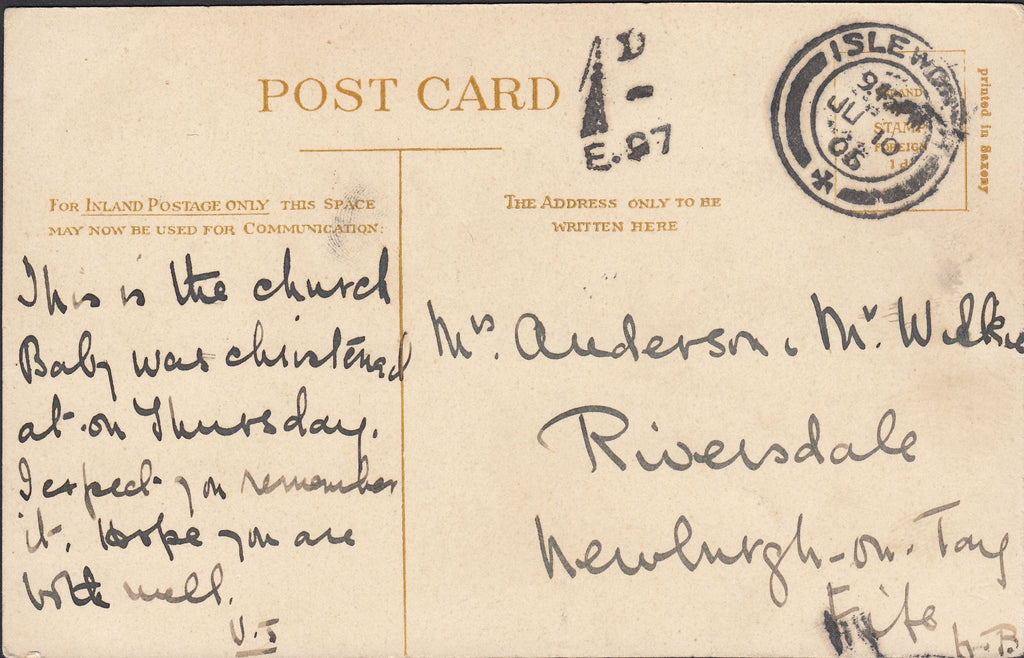 POST CARD
1D
-
E.97
ISLEWORTH
JU 10
05
INLAND
STAMP
FOREIGN
1d
printed in Saxony
FOR INLAND POSTAGE ONLY THIS SPACE
MAY NOW BE USED FOR COMMUNICATION:
THE ADDRESS ONLY TO BE
WRITTEN HERE
This is the church
Baby was christened
at on Thursday.
I expect you remember
it. Hope you are
both well.
V.J
Mrs. Anderson, Mr. Wilkie
Riversdale
Newburgh-on-Tay
Fife
N.B